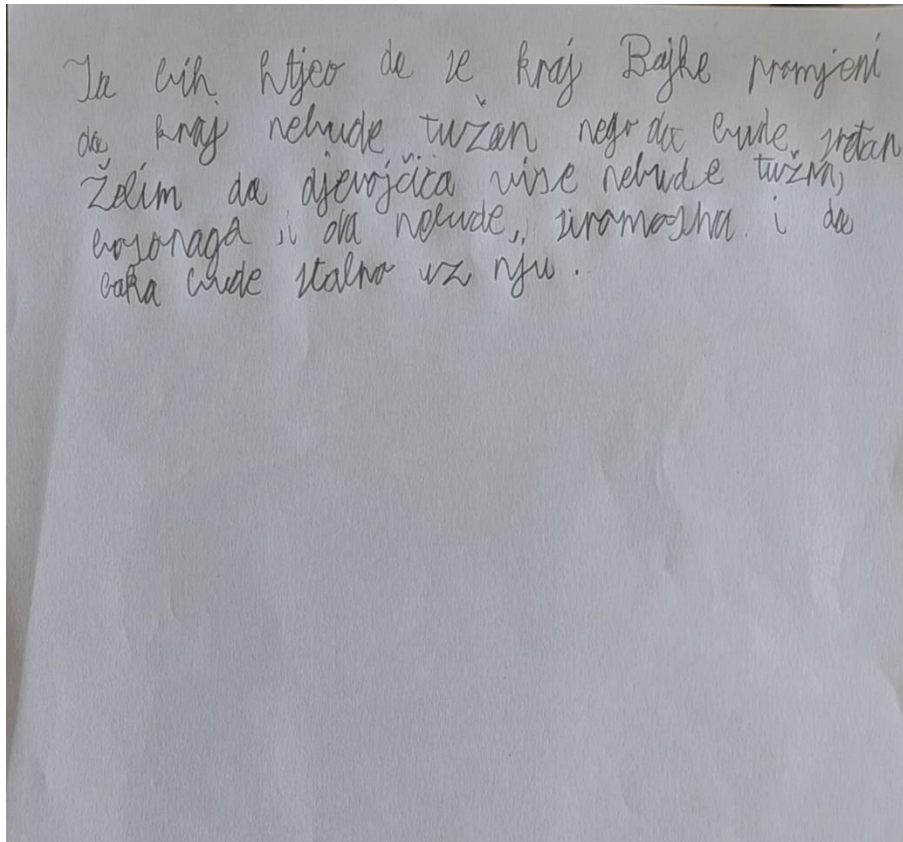 Ja bih htjeo da se kraj Bajke promjeni
da kraj nebude tužan nego da bude sretan
Želim da djevojčica vise nebude tužna,
bosonaga, i da nebude, siromašna. i da
baka bude stalno uz nju.